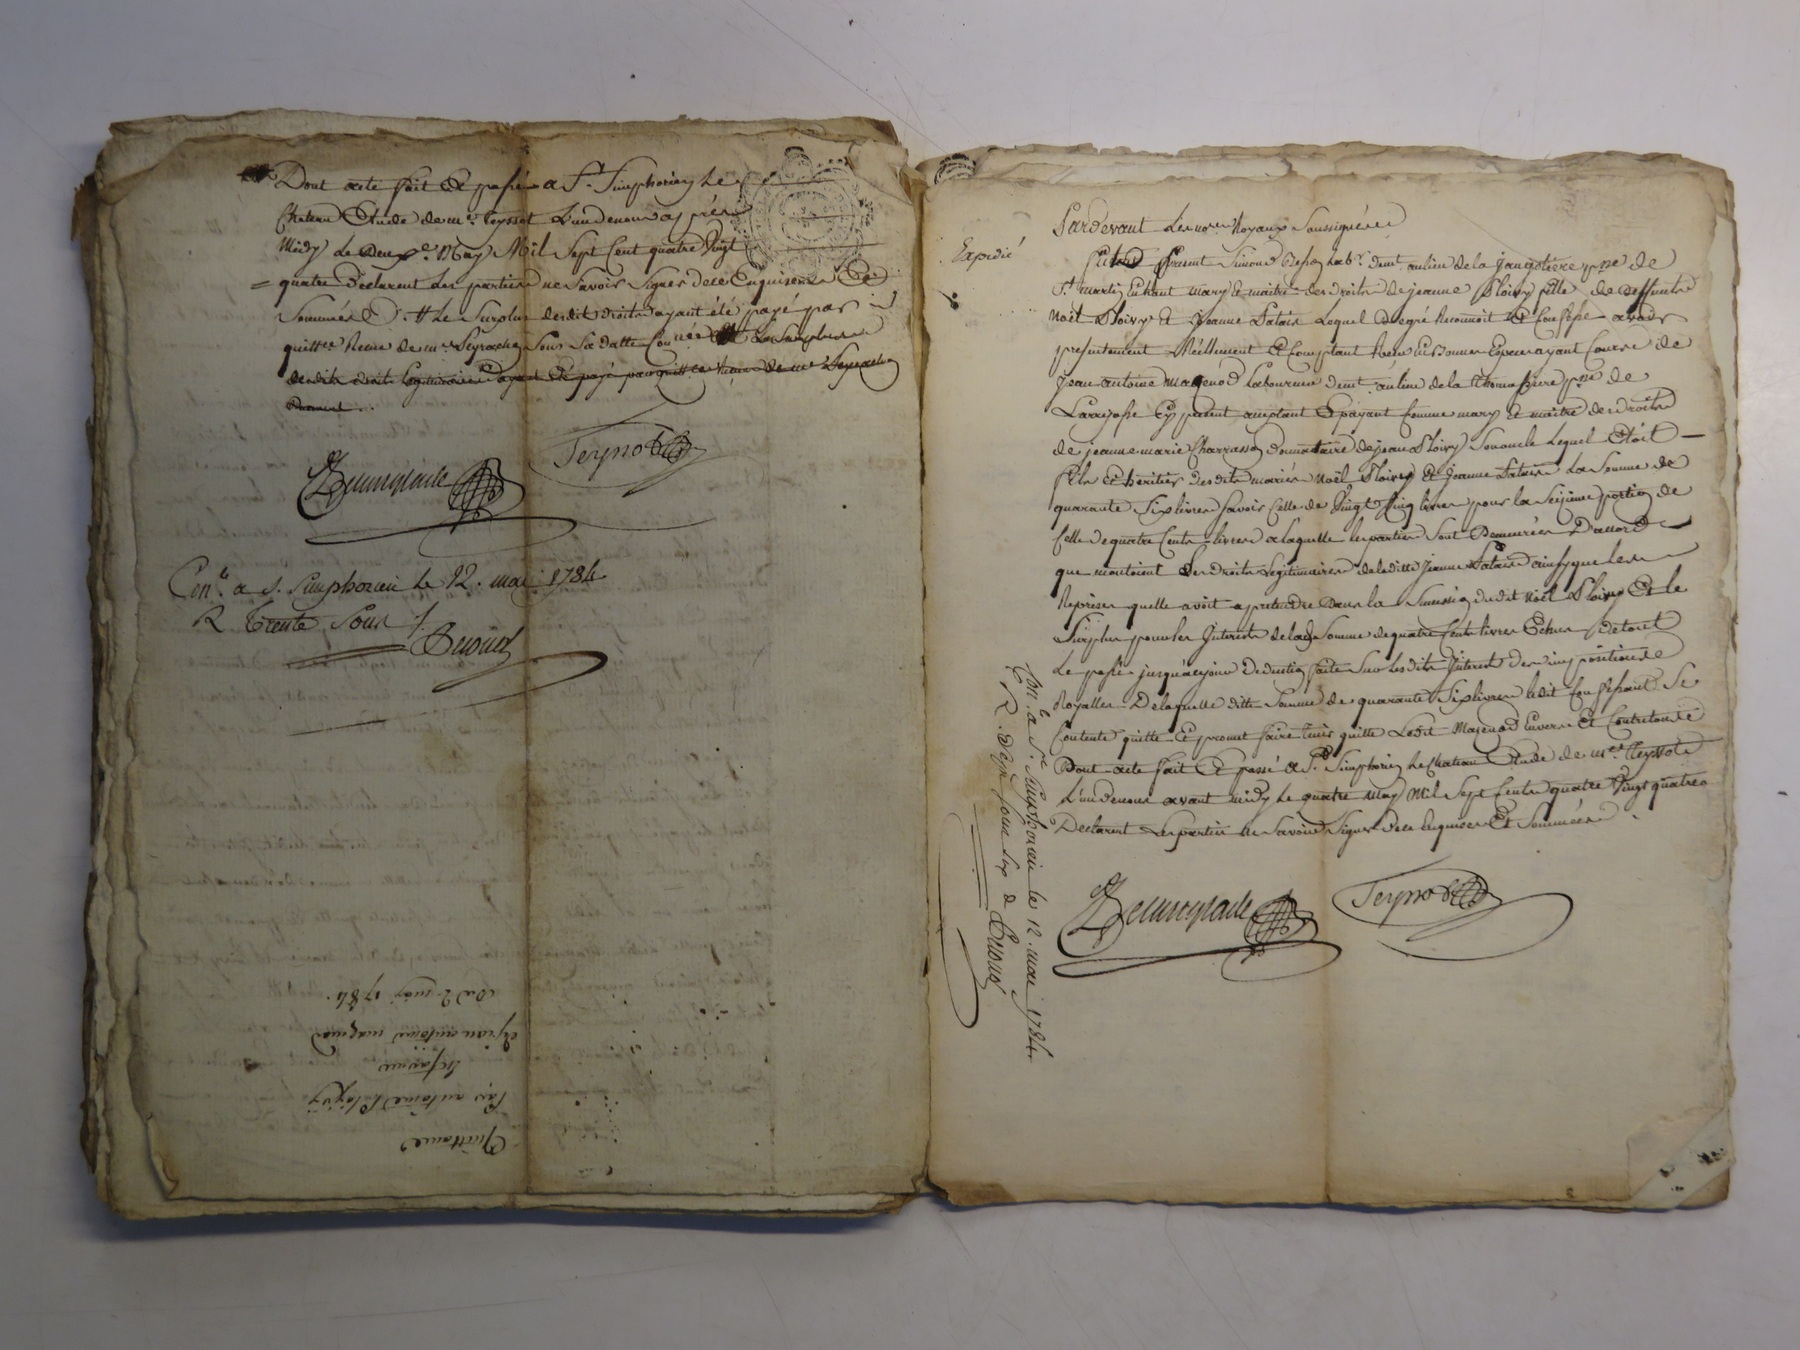 Dont acte fait Et passé a St. Simphorien Le
Chateau Etude de me. Teyssot L'un de nous apprés
Midy Le Deuxe. May Mil Sept Cent quatre Vingt
= quatre Declarent Les parties ne Savoir Signer de ce Enquises Et
Sommées /. # Le Surplus desdit droits ayant été payé par
quittce. Reçue de me. Sous Sa datte Le Surplus
desdits droits legitimaires ayant Eté payé par quittce. Reçue de me.
Teyssot
Conlé. a s. simphorien le 12. mai 1784
R Trente Sous /.
Quittance
par antoine
a jean antoine magnod
du 2. may 1784.
Expedié
Pardevant Les nores. Royaux Soussignées
fut Present Simond labr. demt. au lieu de la jangotiere psse. de
St. martin En haut mary Et maitre des droits de jeanne Ploivy fille de deffunts
Noël Ploivy Et Jeanne Fatais Lequel De gré Reconnoit Et Confesse avoir
presentement Réellement Et Comptant Reçu En Bonnes Especes ayant Cours de
Jean antoine Magnod Laboureur demt. au lieu de la Thomassiere psse. de
Larajasse Cy present acceptant Et payant Comme mary Et maitre des droits
de jeanne marie Charrassin donnataire de jean Ploivy Son oncle Lequel Etoit
fils Et heritier desdits mariés Noël Ploivy Et Jeanne Fatais La Somme de
quarante Six livres Savoir Celle de Vingt Cinq livres pour la Seizieme portion de
Celle de quatre Cents livres a laquelle les parties Sont Demeurées D'accord
que montoient Les Droits Legitimaires de laditte Jeanne Fatais ainsy que les
Reprises quelle avoit a pretendre dans la Succession dudit Noël Ploivy Et le
Surplus pour les Interets de lade. Somme de quatre Cents livres Echus De tout
Le passé jusqu'a ce jour Deduction faite Sur Lesdits Interets des impositions
Royalles De laquelle ditte Somme de quarante Six livres ledit Confessant Se
Contente quitte Et promet faire tenir quitte Ledit Magnod Envers Et Contre tous
Dont acte fait Et passé a St. Simphorien Le Chateau Etude de me. Teyssot
L'un de nous avant midy Le quatre May Mil Sept Cents quatre Vingt quatre
Declarent Les parties ne Savoir Signer de ce Enquises Et Sommées
Teyssot
Conlé. a St. Simphorien le 12. mai 1784
R. sous six d